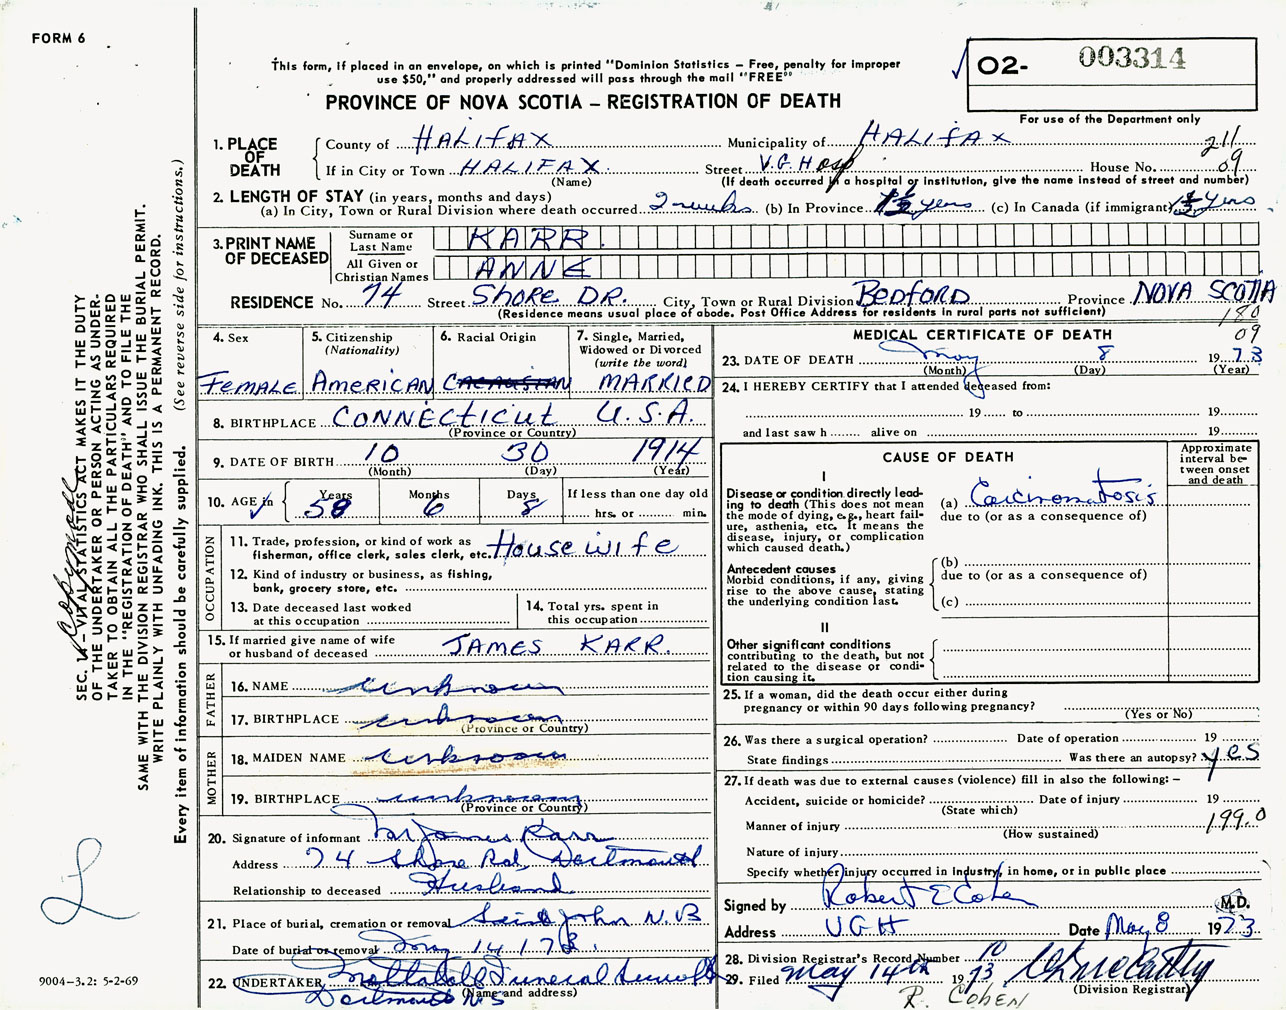 FORM 6
This form, if placed in an envelope, on which is printed "Dominion Statistics – Free, penalty for improper
use $50," and properly addressed will pass through the mail "FREE"
PROVINCE OF NOVA SCOTIA – REGISTRATION OF DEATH
✓ O2- 003314
For use of the Department only
1. PLACE OF DEATH
County of HALIFAX Municipality of HALIFAX 211
If in City or Town HALIFAX. Street V.G. Hosp House No. 09
(Name) (If death occurred in a hospital or institution, give the name instead of street and number)
2. LENGTH OF STAY (in years, months and days)
(a) In City, Town or Rural Division where death occurred 2 weeks (b) In Province 1½ years (c) In Canada (if immigrant) 1½ yrs
3. PRINT NAME OF DECEASED
Surname or Last Name KARR.
All Given or Christian Names ANNE
RESIDENCE No. 74 Street SHORE DR. City, Town or Rural Division BEDFORD Province NOVA SCOTIA
(Residence means usual place of abode. Post Office Address for residents in rural parts not sufficient)
180
09
4. Sex FEMALE
5. Citizenship (Nationality) AMERICAN
6. Racial Origin CACAUSIAN
7. Single, Married, Widowed or Divorced (write the word) MARRIED
8. BIRTHPLACE CONNECTICUT U.S.A.
(Province or Country)
9. DATE OF BIRTH 10 30 1914
(Month) (Day) (Year)
10. AGE in ✓ Years 58 Months 6 Days 8 If less than one day old
hrs. or min.
OCCUPATION
11. Trade, profession, or kind of work as
fisherman, office clerk, sales clerk, etc. Housewife
12. Kind of industry or business, as fishing,
bank, grocery store, etc.
13. Date deceased last worked
at this occupation
14. Total yrs. spent in
this occupation
15. If married give name of wife
or husband of deceased JAMES KARR.
FATHER
16. NAME unknown
17. BIRTHPLACE unknown
(Province or Country)
MOTHER
18. MAIDEN NAME unknown
19. BIRTHPLACE unknown
(Province or Country)
20. Signature of informant Mr James Karr
Address 74 Shore Rd, Dartmouth
Relationship to deceased Husband
21. Place of burial, cremation or removal Saint John N.B
Date of burial or removal May 14 173.
22. UNDERTAKER Funeral Service
Dartmouth NS (Name and address)
MEDICAL CERTIFICATE OF DEATH
23. DATE OF DEATH May 8 1973
(Month) (Day) (Year)
24. I HEREBY CERTIFY that I attended deceased from:
19 to 19
and last saw h alive on 19
CAUSE OF DEATH
Approximate interval between onset and death
I
Disease or condition directly leading to death (This does not mean the mode of dying, e.g., heart failure, asthenia, etc. It means the disease, injury, or complication which caused death.)
(a) Carcinomatosis
due to (or as a consequence of)
Antecedent causes
Morbid conditions, if any, giving rise to the above cause, stating the underlying condition last.
(b)
due to (or as a consequence of)
(c)
II
Other significant conditions
contributing to the death, but not related to the disease or condition causing it.
25. If a woman, did the death occur either during
pregnancy or within 90 days following pregnancy?
(Yes or No)
26. Was there a surgical operation? Date of operation 19
State findings Was there an autopsy? yes
27. If death was due to external causes (violence) fill in also the following: –
Accident, suicide or homicide? Date of injury 19
(State which)
Manner of injury 199.0
(How sustained)
Nature of injury
Specify whether injury occurred in Industry, in home, or in public place
Signed by Robert E Cohen M.D.
Address VGH Date May 8 1973
28. Division Registrar's Record Number 10
29. Filed May 14th 1973
(Division Registrar)
R. COHEN
SEC. 17 – VITAL STATISTICS ACT MAKES IT THE DUTY
OF THE UNDERTAKER OR PERSON ACTING AS UNDERTAKER TO OBTAIN ALL THE PARTICULARS REQUIRED
IN THE "REGISTRATION OF DEATH" AND TO FILE THE
SAME WITH THE DIVISION REGISTRAR WHO SHALL ISSUE THE BURIAL PERMIT.
WRITE PLAINLY WITH UNFADING INK. THIS IS A PERMANENT RECORD.
Every item of information should be carefully supplied. (See reverse side for instructions.)
9004–3.2: 5-2-69